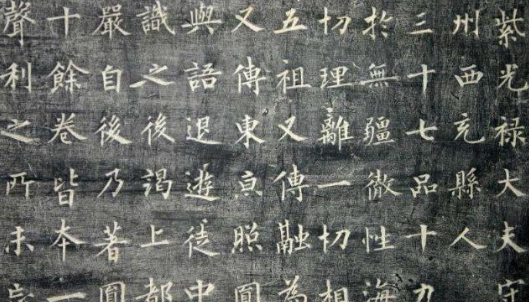 紫光禄大夫守
州西充縣人
三十七品十
於無疆徹性海
切理離一切相
五祖又傳融為
又傳東亰照圓
與語退遊徒中
識之後謁上都
嚴自後乃著圓
十餘卷皆本一
聲利之所未